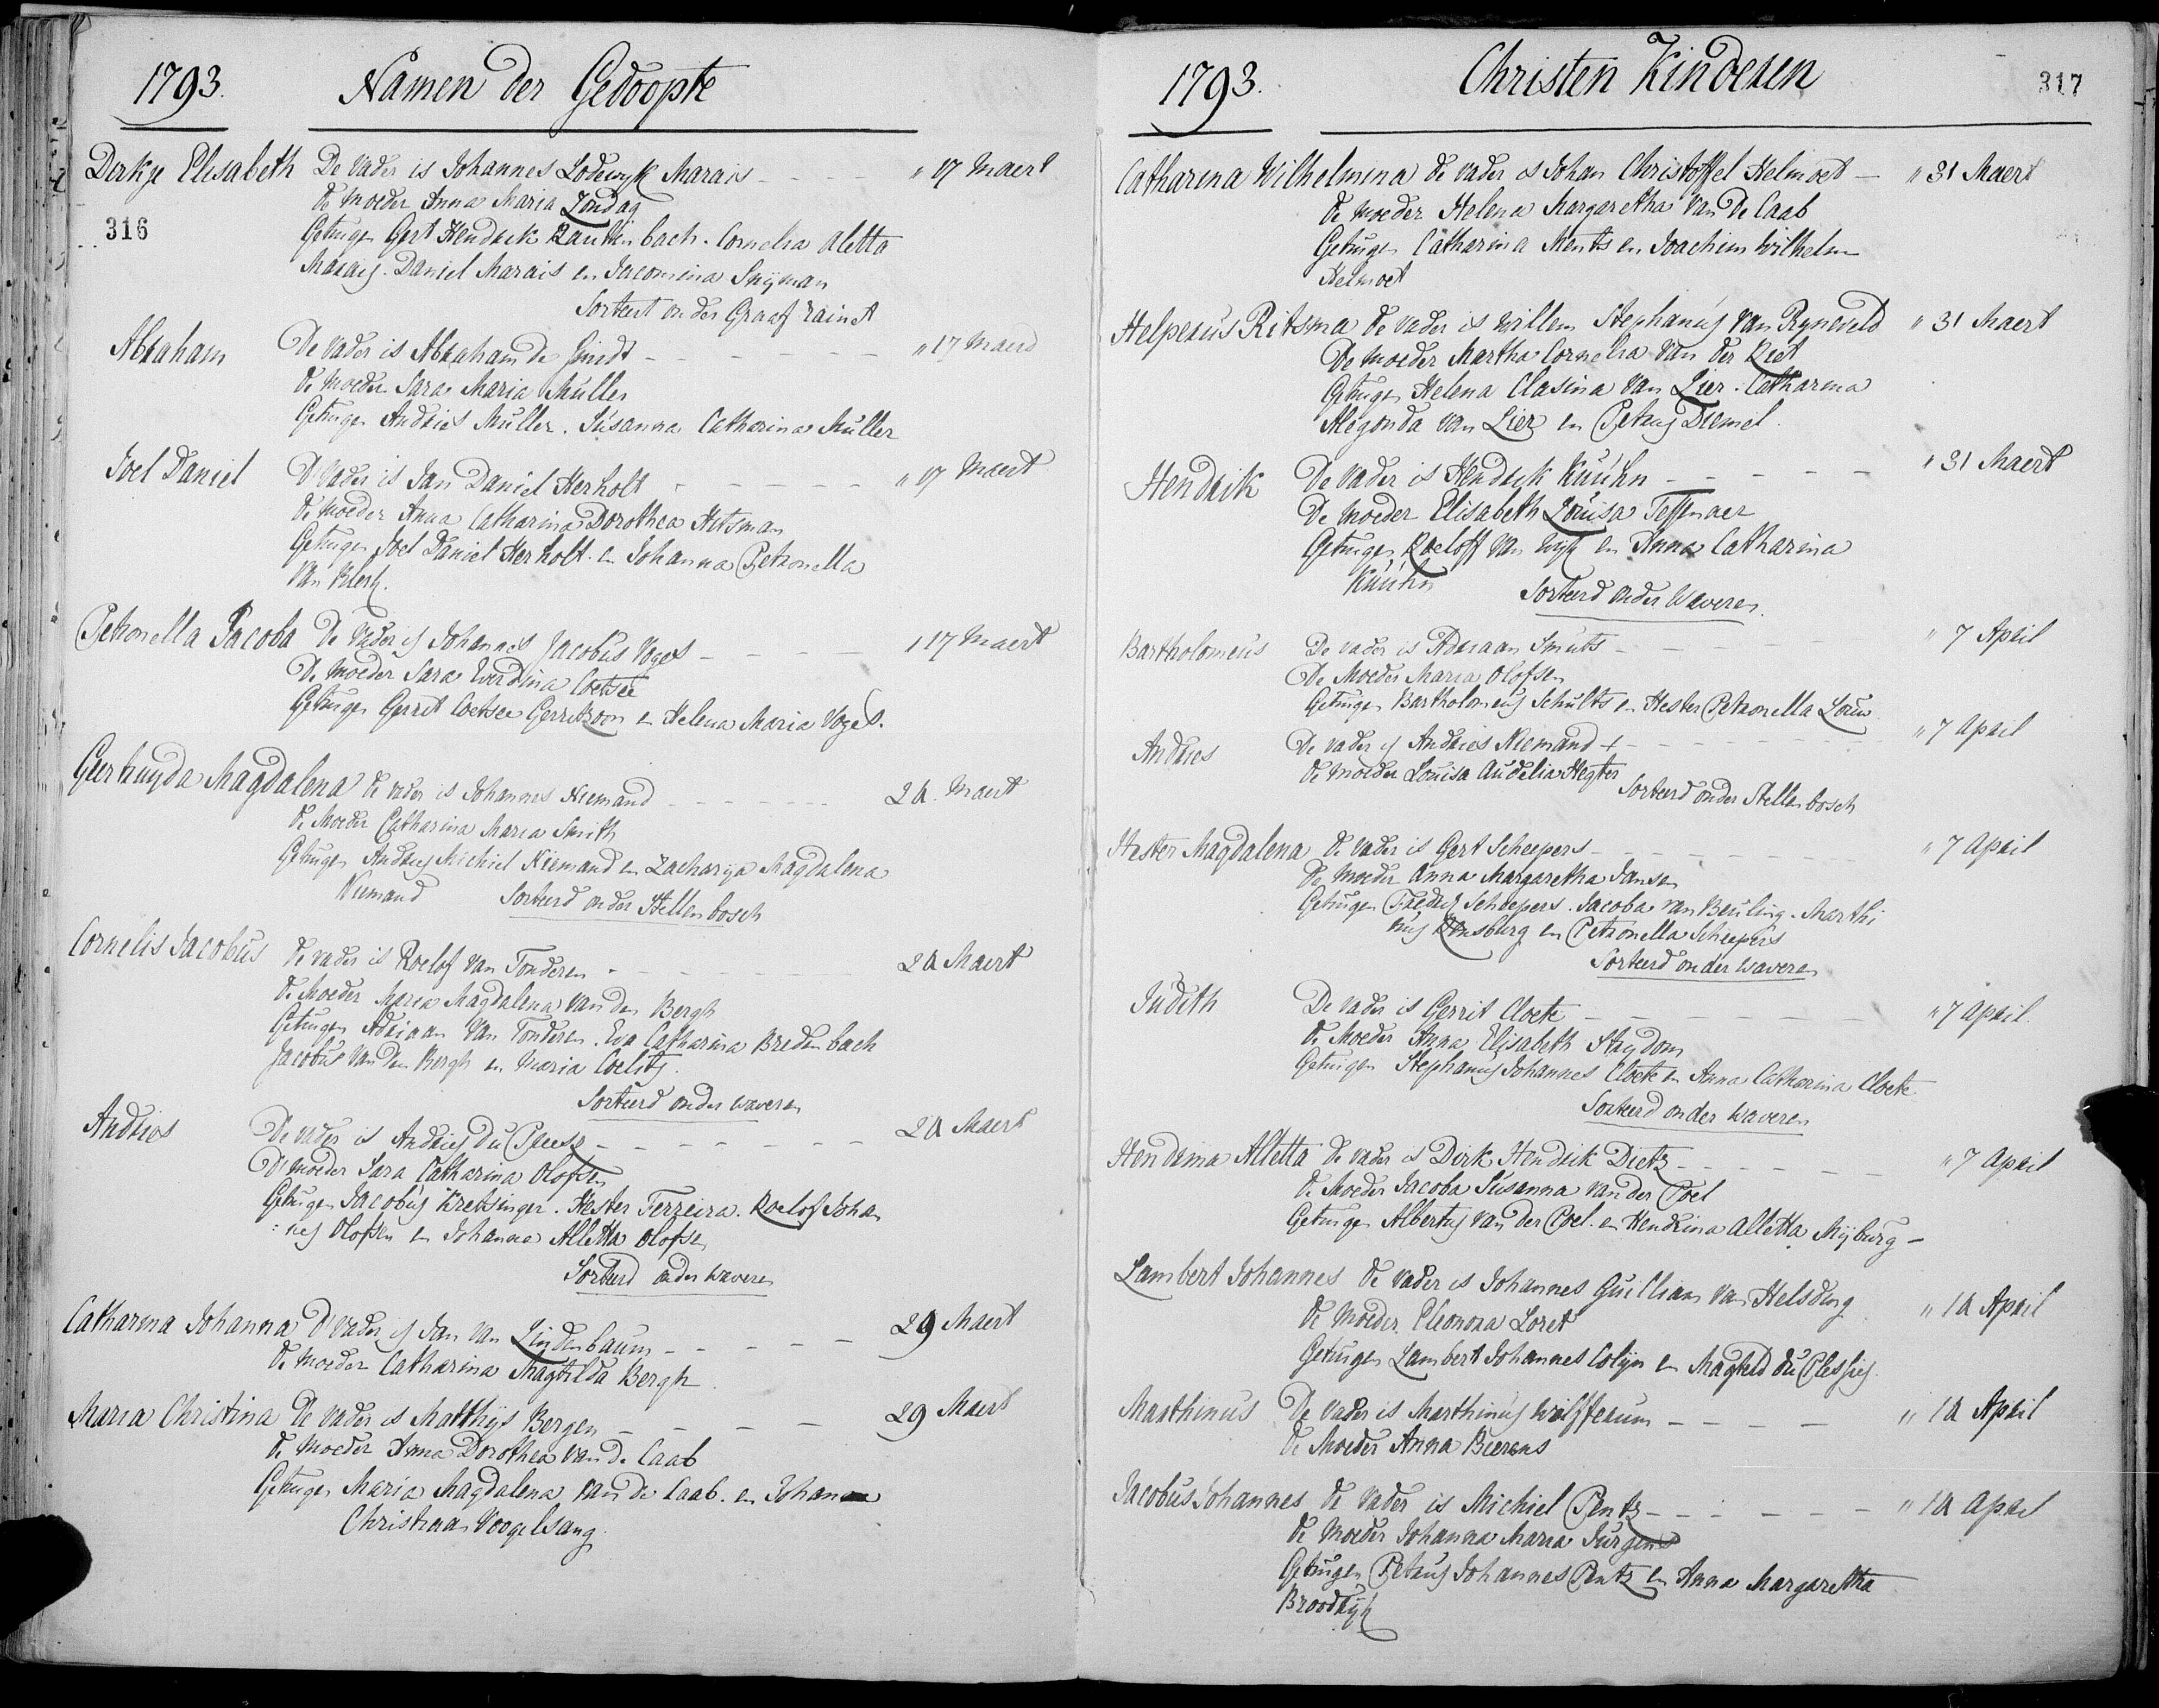 1793. Namen der Gedoopte
Derkje Elisabeth De vader is Johannes Lodewyk Marais - - - - " 17 Maert
de Moeder Anna Maria Zondag
316
Getuigen Gert Hendrik Rautenbach. Cornelia Aletta
Marais. Daniel Marais en Jacomina Snyman
Sorteert onder Graaf rainet
Abraham De vader is Abraham de Smidt - - - - - - " 17 Maerd
de Moeder Sara Maria Muller
Getuigen Andries Muller. Susanna Catharina Muller
Joel Daniel D' vader is Jan Daniel Herholt - - - - - " 17 Maert
de Moeder Anna Catharina Dorothea Hitsman
Getuigen Joel Daniel Herholt. en Johanna Petronella
van Klerk.
Petronella Jacoba De vader is Johannes Jacobus Vogel - - - - - " 17 Maert
De Moeder Sara Everdina Coetsee
Getuigen Gerrit Coetsee Gerritzoon en Helena Maria Vogel.
Geertruyda Magdalena de vader is Johannes Niemand - - - - - - 24. Maert
de Moeder Catharina Maria Smith
Getuigen Andries Michiel Niemand en Zacharya Magdalena
Niemand Sorteerd onder Stellenbosch
Cornelis Jacobus de vader is Roelof van Tonderen - - - - - 24 Maert
de Moeder Maria Magdalena van den Bergh
Getuigen Adriaan van Tonderen. Eva Catharina Bredenbach
Jacobus van den Bergh en Maria Coelitz.
Sorteerd onder waveren
Andries De vader is Andries du Pleesz - - - - - - - 24 Maert
D' Moeder Sara Catharina Olofsen
Getuigen Jacobus Kretsinger. Hester Ferreira. Roelof Johan
=nes Olofsen en Johanna Alletta Olofsen
Sorteerd onder Waveren
Catharina Johanna D' vader is Jan van Lindenbaum - - - - - 29 Maert
de Moeder Catharina Magtilda Bergh
Maria Christina De vader is Matthys Bergen - - - - 29 Maert
de Moeder Anna Dorothea van de Caab
Getuigen Maria Magdalena van de Caab. en Johanna
Christina Voogelsang.
1793. Christen Kinderen 317
Catharina Wilhelmina de vader is Johan Christoffel Helmoet - " 31 Maert
de Moeder Helena Margaretha van de Caab
Getuigen Catharina Ments en Joachim Wilhelm
Helmoet
Helperus Ritsma de vader is Willem Stephanus van Ryneveld " 31 Maert
De Moeder Martha Cornelia van der Reet
Getuigen Helena Clasina van Lier. Catharina
Alegonda van Lier en Petrus Diemel.
Hendrik De vader is Hendrik Kuuhn - - - - - " 31 Maert
De Moeder Elisabeth Louisa Tessenaer
Getuigen Roeloff van Wyk en Anna Catharina
Kuuhn Sorteerd onder Waveren.
Bartholomeus De vader is Adriaan Smuts - - - - - " 7 April
De Moeder Maria Olofsen
Getuigen Bartholomeus Schults en Hester Petronella Louw
Andries De vader is Andries Niemand + - - - - - - - " 7 April
de Moeder Louisa Audelia Hegter
Sorteerd onder Stellenbosch
Hester Magdalena de vader is Gert Scheepers - - - - - - - " 7 April
De Moeder Anna Margaretha Jansen
Getuigen Fredrik Scheepers. Jacoba van Beuling. Marthi
nus Rensburg en Petronella Scheepers
Sorteerd onder Waveren
Judith De vader is Gerrit Cloete - - - - - - " 7 April.
de Moeder Anna Elisabeth Straydom
Getuigen Stephanus Johannes Cloete en Anna Catharina Cloete
Sorteerd onder Waveren
Hendrina Alletta de vader is Dirk Hendrik Dietz - - - - - - " 7 April
de Moeder Jacoba Susanna van der Poel
Getuigen Albertus van der Poel. en Hendrina Alletta Myburg -
Lambert Johannes de vader is Johannes Guilliam van Helsding " 14 April
de Moeder. Eleonora Loret
Getuigen Lambert Johannes Colyn en Magteld du Plessies.
Marthinus De vader is Marthinus Wolfferum - - - - - " 14 April
De Moeder Anna Beerens
Jacobus Johannes de vader is Michiel Pentz - - - - - - " 14 April
de Moeder Johanna Maria Jurgens
Getuigen Petrus Johannes Pentz en Anna Margaretha
Broodryk